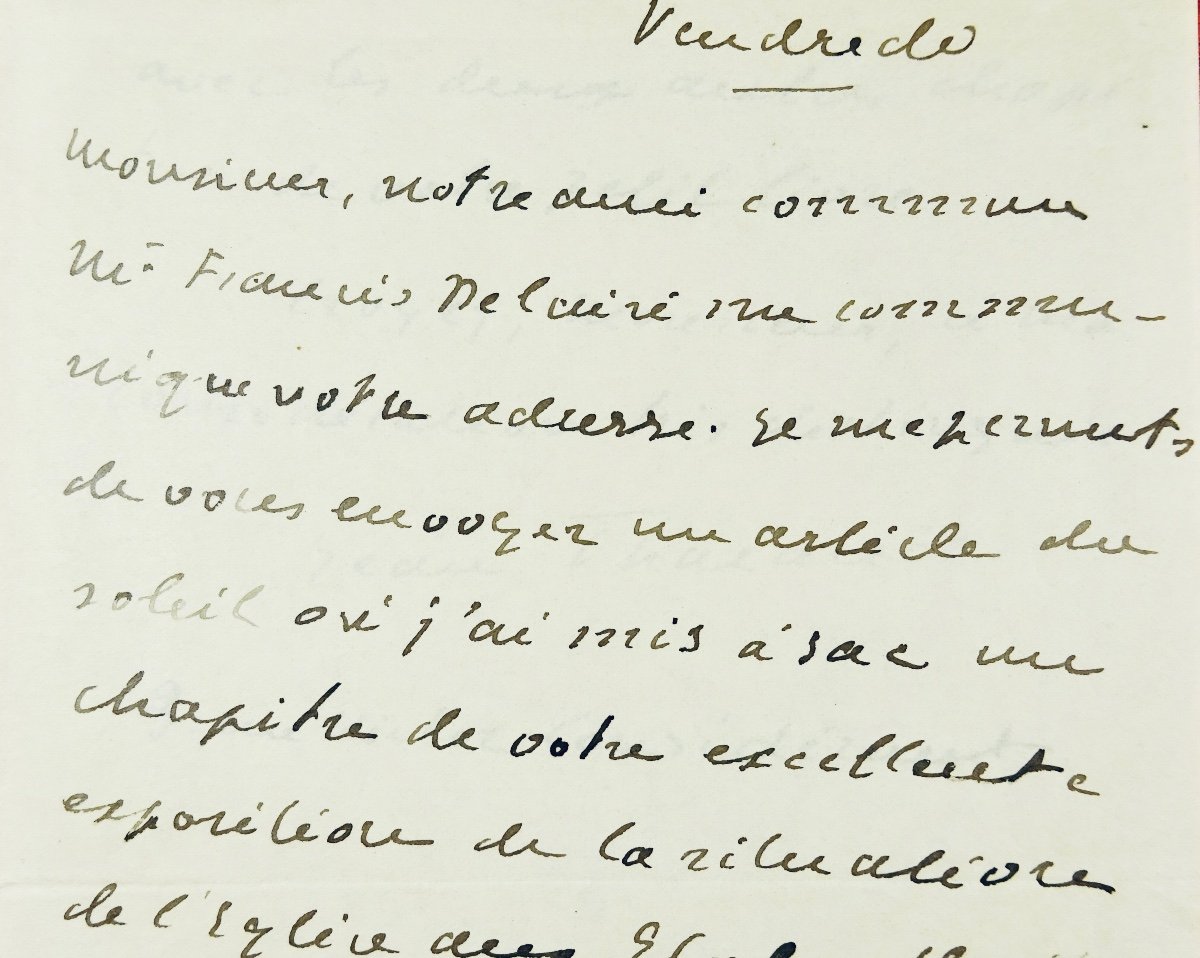 Vendredi
Monsieur, notre ami commun
Mr Francis Delaire me commu-
nique votre adresse. Je me permets
de vous envoyer un article du
soleil où j'ai mis à sac un
chapitre de votre excellente
exposition de la situation
de l'Eglise aux